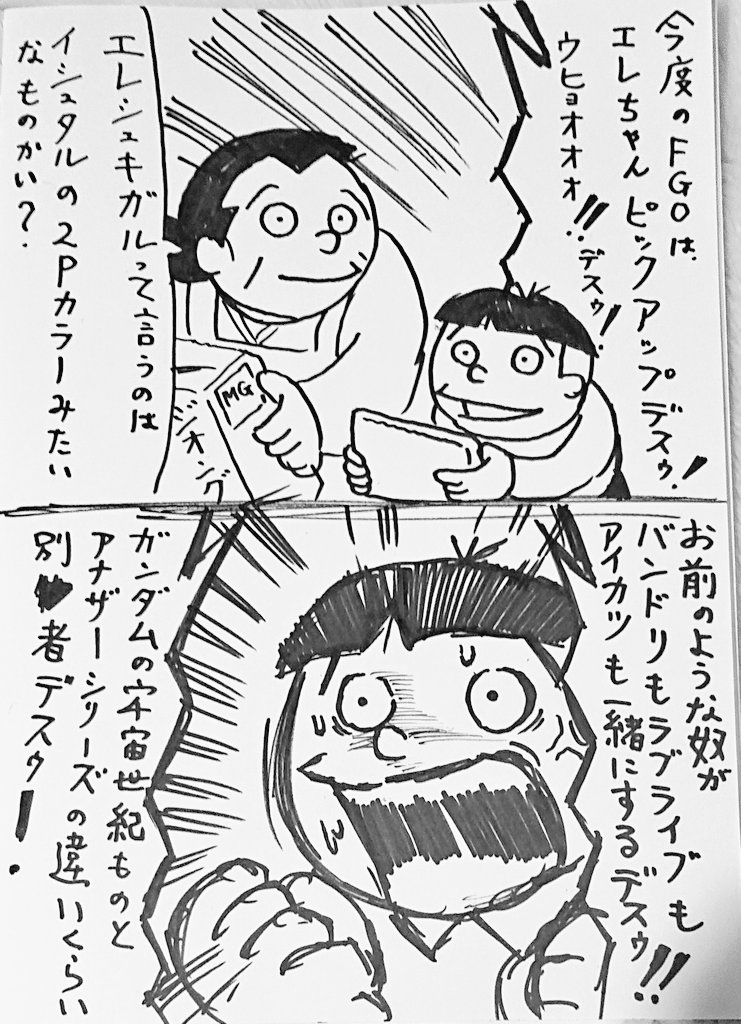 今度のFGOは、
エレちゃんピックアップデスゥ!
ウヒョオオオ!!デスゥ!
エレシュキガルって言うのは
イシュタルの2Pカラーみたい
なものかい?
MG
ジオング
お前のような奴が
バンドリもラブライブも
アイカツも一緒にするデスゥ!!
ガンダムの宇宙世紀ものと
アナザーシリーズの違いくらい
別♥者デスゥ!